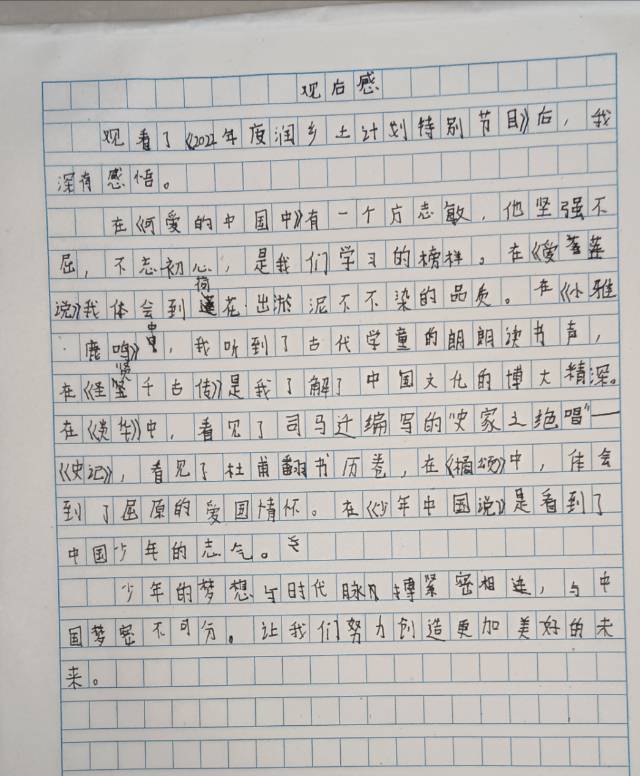 观后感
观看了《2022年度润乡土计划特别节目》后，我
深有感悟。
在《可爱的中国中》有一个方志敏，他坚强不
屈，不忘初心，是我们学习的榜样。在《爱莲
说》我体会到荷花出淤泥不不染的品质。在《小雅
·鹿鸣》中，我听到了古代学童的朗朗读书声，
在《圣贤千古传》是我了解了中国文化的博大精深。
在《读华》中，看见了司马迁编写的"史家之绝唱"一
《史记》，看见了杜甫翻书历卷，在《橘颂》中，体会
到了屈原的爱国情怀。在《少年中国说》是看到了
中国少年的志气。
少年的梦想与时代脉搏紧密相连，与中
国梦密不可分。让我们努力创造更加美好的未
来。